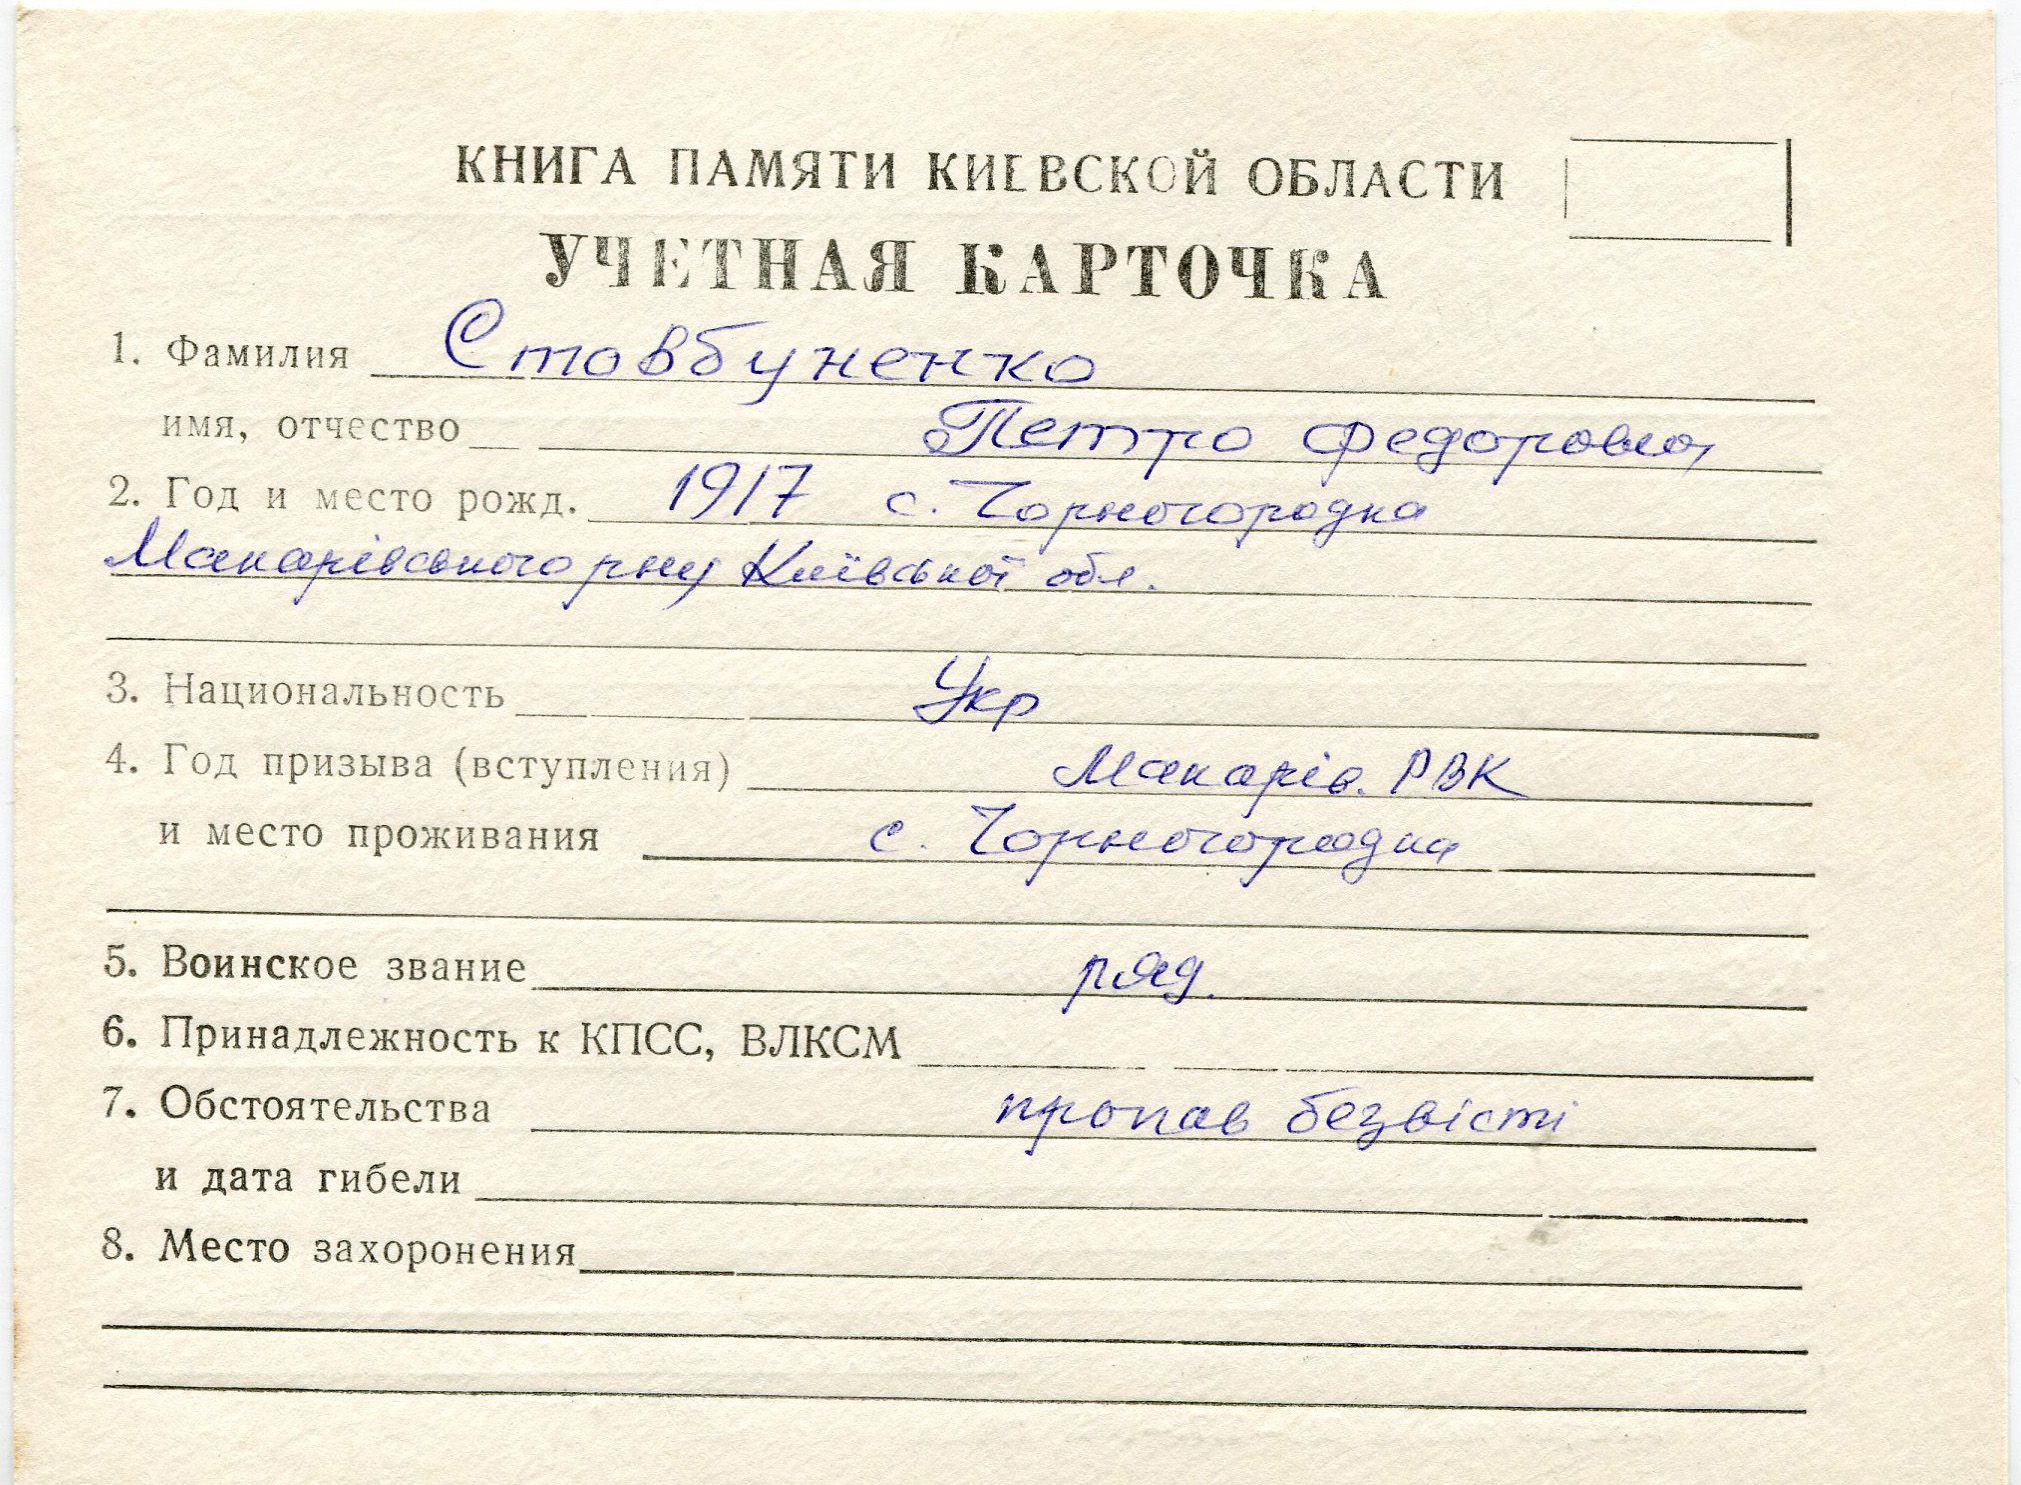 КНИГА ПАМЯТИ КИЕВСКОЙ ОБЛАСТИ
УЧЕТНАЯ КАРТОЧКА
1. Фамилия Стовбуненко
имя, отчество Петро Федорович
2. Год и место рожд. 1917 с. Чорногородка
Макарівського р-ну Київської обл.
3. Национальность Укр
4. Год призыва (вступления) Макарів. РВК
и место проживания с. Чорногородка
5. Воинское звание ряд.
6. Принадлежность к КПСС, ВЛКСМ
7. Обстоятельства пропав безвісті
и дата гибели
8. Место захоронения